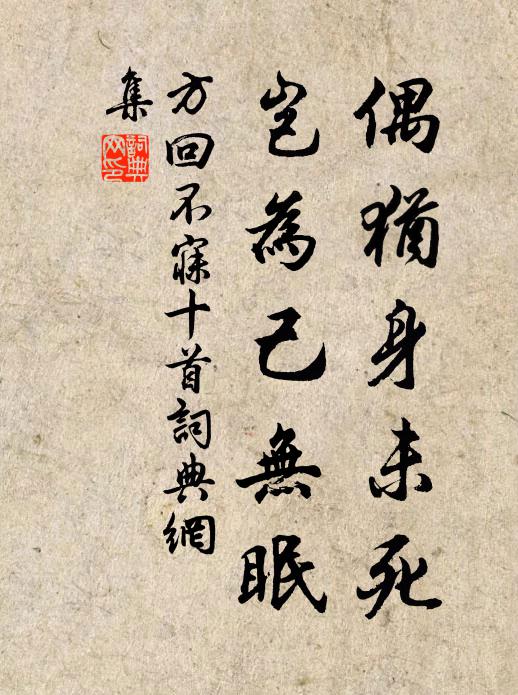 偶猶身未死
豈為己無眠
方回不寐十首詞典網
集
詞典
网印